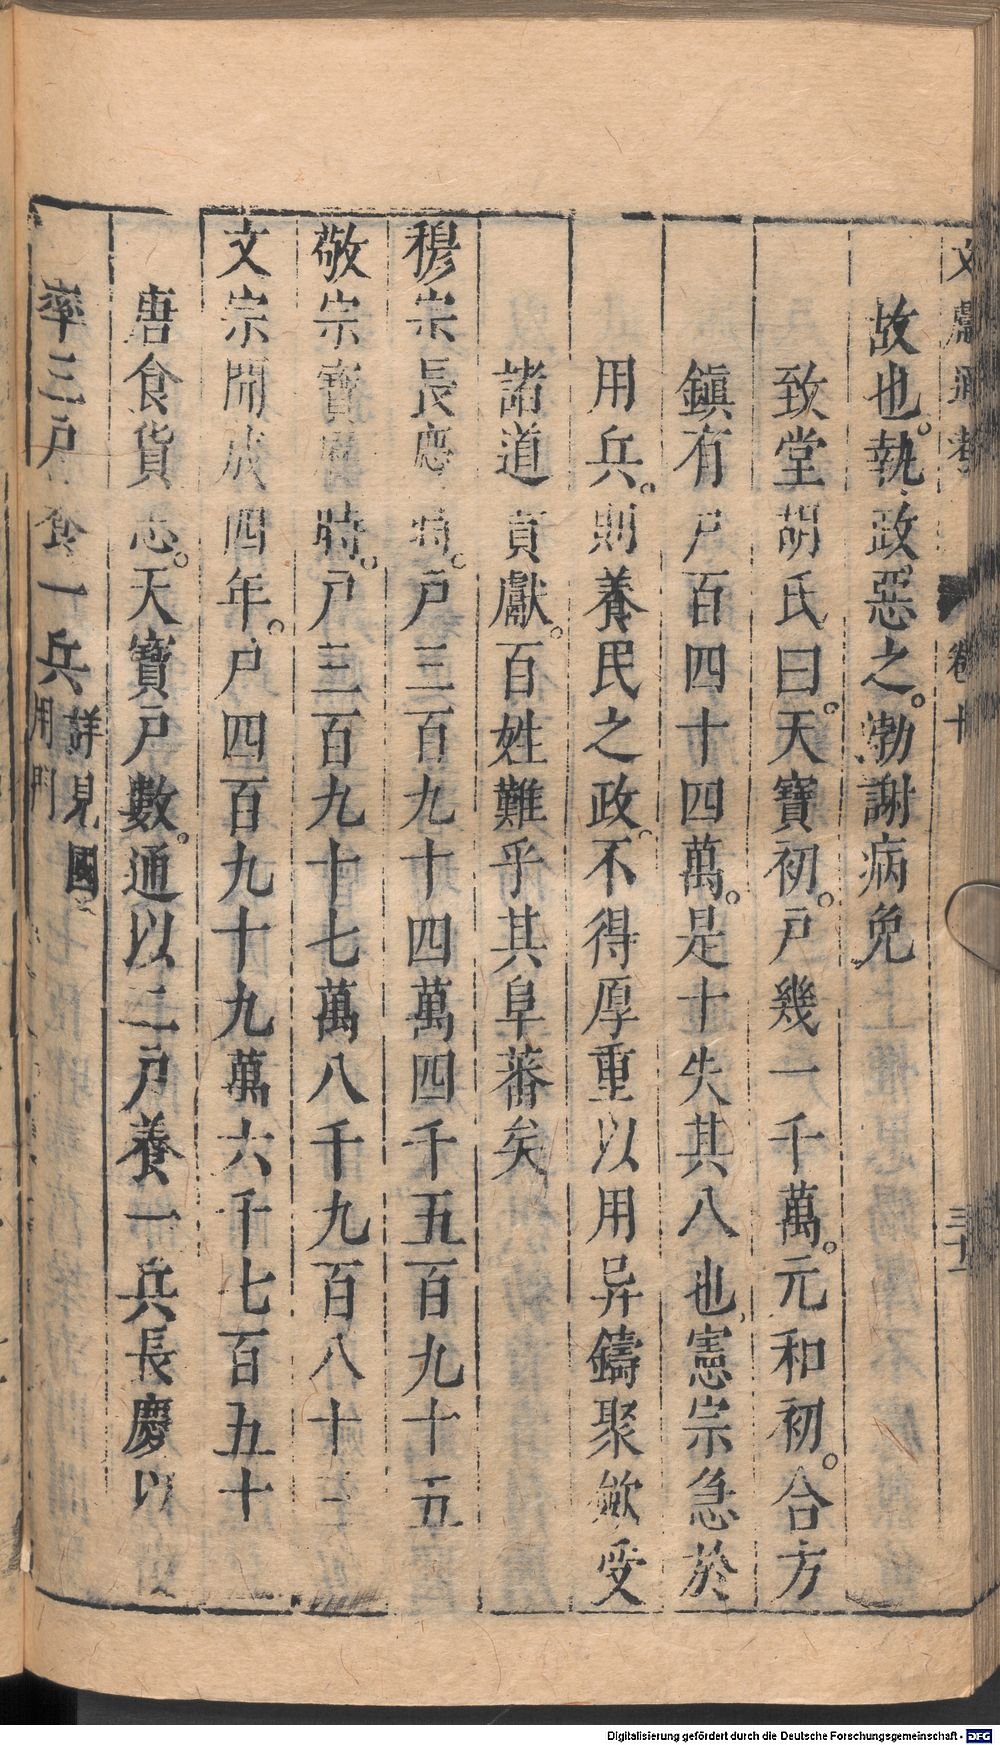 文獻通考 卷十
故也。執政惡之。渤謝病免
致堂胡氏曰。天寶初。戸幾一千萬。元和初。合方
鎮有戸百四十四萬。是十失其八也。憲宗急於
用兵。則養民之政。不得厚重以用异鑄聚斂受
諸道貢獻。百姓難乎其阜蕃矣
穆宗長慶時。戸三百九十四萬四千五百九十五
敬宗寶曆時。戸三百九十七萬八千九百八十二
文宗開成四年。戸四百九十九萬六千七百五十
唐食貨志。天寶戸數。通以二戸養一兵長慶以
率三戸食一兵詳見國用門
Digitalisierung gefördert durch die Deutsche Forschungsgemeinschaft - DFG